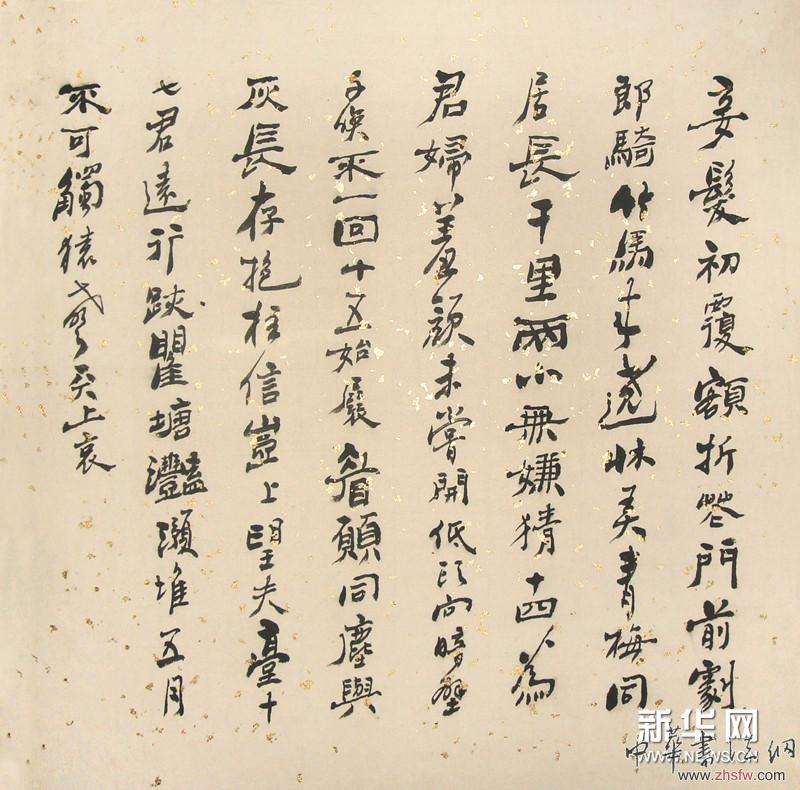 妾髮初覆額折花門前劇
郎騎竹馬来遶牀弄青梅同
居長干里兩小無嫌猜十四為
君婦羞顏未嘗開低頭向暗壁
千喚不一回十五始展眉願同塵與
灰長存抱柱信豈上望夫臺十
六君遠行瞿塘灩澦堆五月
不可觸猿聲天上哀
新华网
WWW.NEWS.CN
中華書法網
www.zhsfw.com